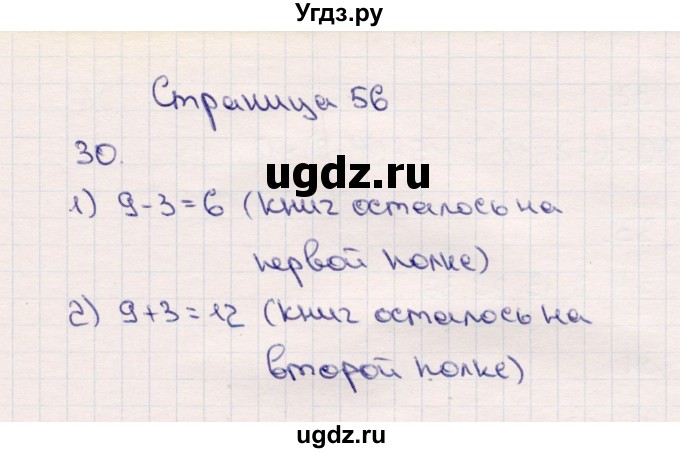 Угдз.ру
Страница 56
30.
ugdz.ru
1) 9-3=6 (книг осталось на
первой полке)
2) 9+3=12 (книг осталось на
второй полке)
ugdz.ru